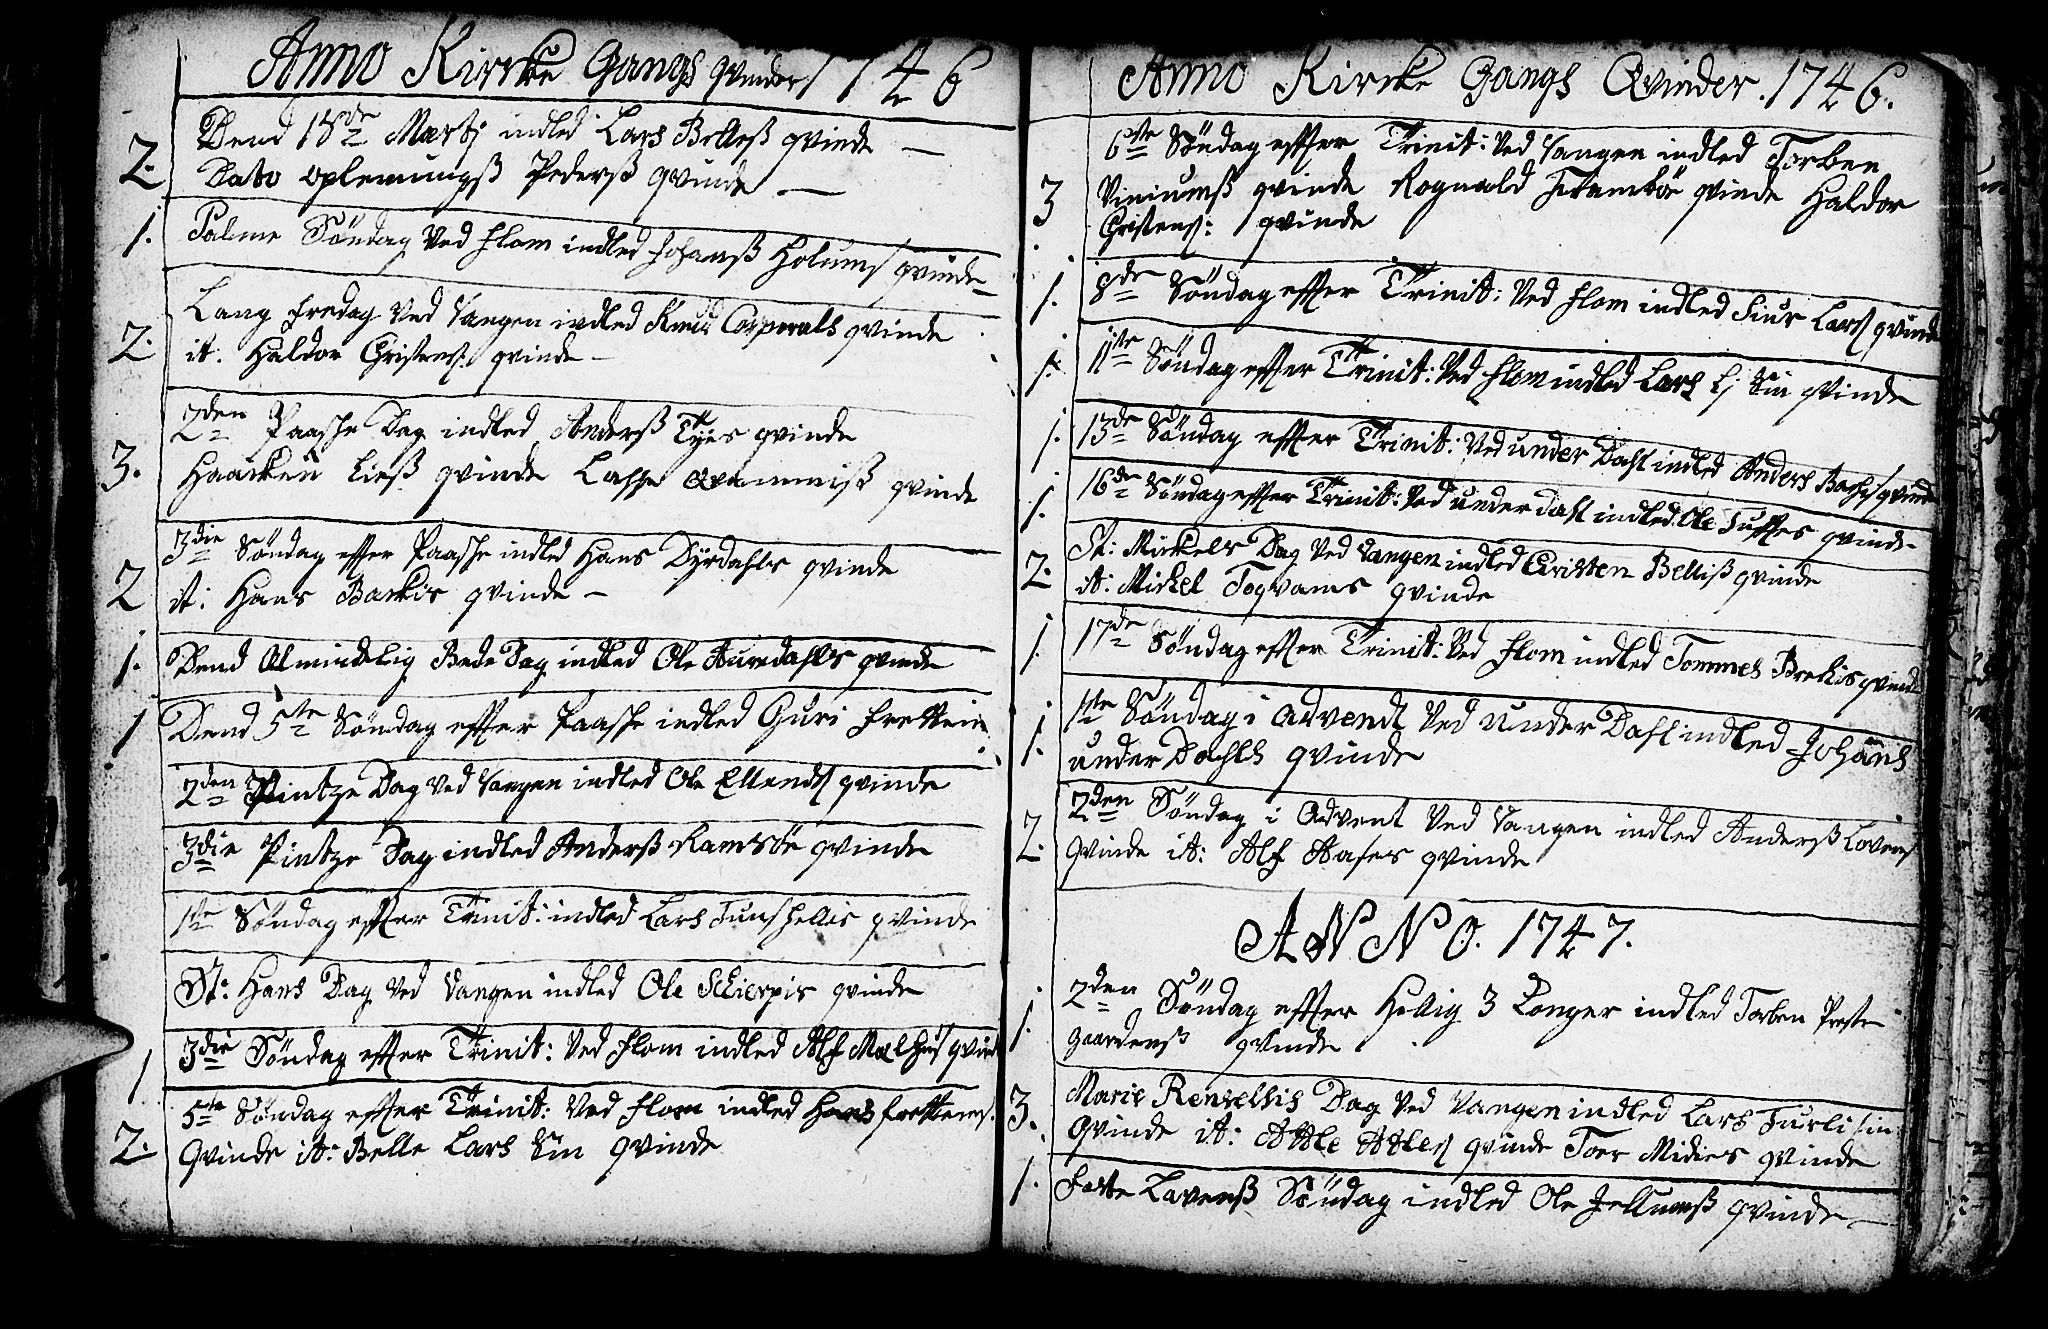 Anno Kircke Gangs qvinder 1746
Dend 18de Martj indled Lars Belleß qvinde —
2. Dato oplenungß Pederß qvinde —
1. Palme Söndag Ved Flom indled Johanß Holums qvinde
Lang Fredag Ved Vangen indled Knud Corporals qvinde
2. it. Haldor Christens: qvinde —
2den Paaske Dag indled Anderß Tyes qvinde
3. Haacken Ließ qvinde Lasse qvinde
3die Söndag effter Paaske indled Hans Dyrdahls qvinde
2 it: Hans Barkis qvinde —
1. Dend Almindelig Bede Dag indled Ole Auredahls qvinde
1 Dend 5te Söndag effter Paaske indled Guri Frettein
2den Pintze Dag Ved Vangen indled Ole Ellends qvinde
3die Pintze Dag indled Anderß Ramsöe qvinde
1te Söndag effter Trinit: indled Lars Tunshellis qvinde
St: Hans Dag Ved Vangen indled Ole Schierpis qvinde
1 3die Söndag effter Trinit: Ved Flom indled Alf Melhus qvinde
5te Söndag effter Trinit: Ved Flom indled Hans Frettems.
2. Qvinde it: Belle Lars Sin qvinde
Anno Kircke Gangs Qvinder. 1746.
6te Söndag effter Trinit: Ved Vangen indled Torben
3 Viniumß qvinde Rognald Frambör qvinde Haldor
Christens: qvinde
1. 8de Söndag effter Trinit: Ved Flom indled Siur Lars qvinde
1. 11te Söndag effter Trinit: Ved Flom indled Lars Lj Sin qvinde
1. 13de Söndag effter Trinit: Ved under Dahl indled Anders Backs qvinde
1. 16de Söndag effter Trinit: Ved under dahl indled Ole Tuffes qvinde
St: Mickels Dag Ved Vangen indled Christen Belliß qvinde
2. it: Mickel Togvams qvinde
1. 17de Söndag effter Trinit: Ved Flom indled Tommes Brekis qvinde
1te Söndag i Advendt Ved under Dahl indled Johans
1. under Dahls qvinde
2den Söndag i Advent Ved Vangen indled Anderß Lovens
2. Qvinde it: Alf Aases qvinde
ANNO. 1747.
2den Söndag effter Hellig 3 Konger indled Torben Præste
1. gaardenß qvinde
Marie Renselsis Dag Ved Vangen indled Lars Turli sin
3. Qvinde it: Atle Atles qvinde Toer Midies qvinde
1. Faste Lavenß Söndag indled Ole Jellumß qvinde —